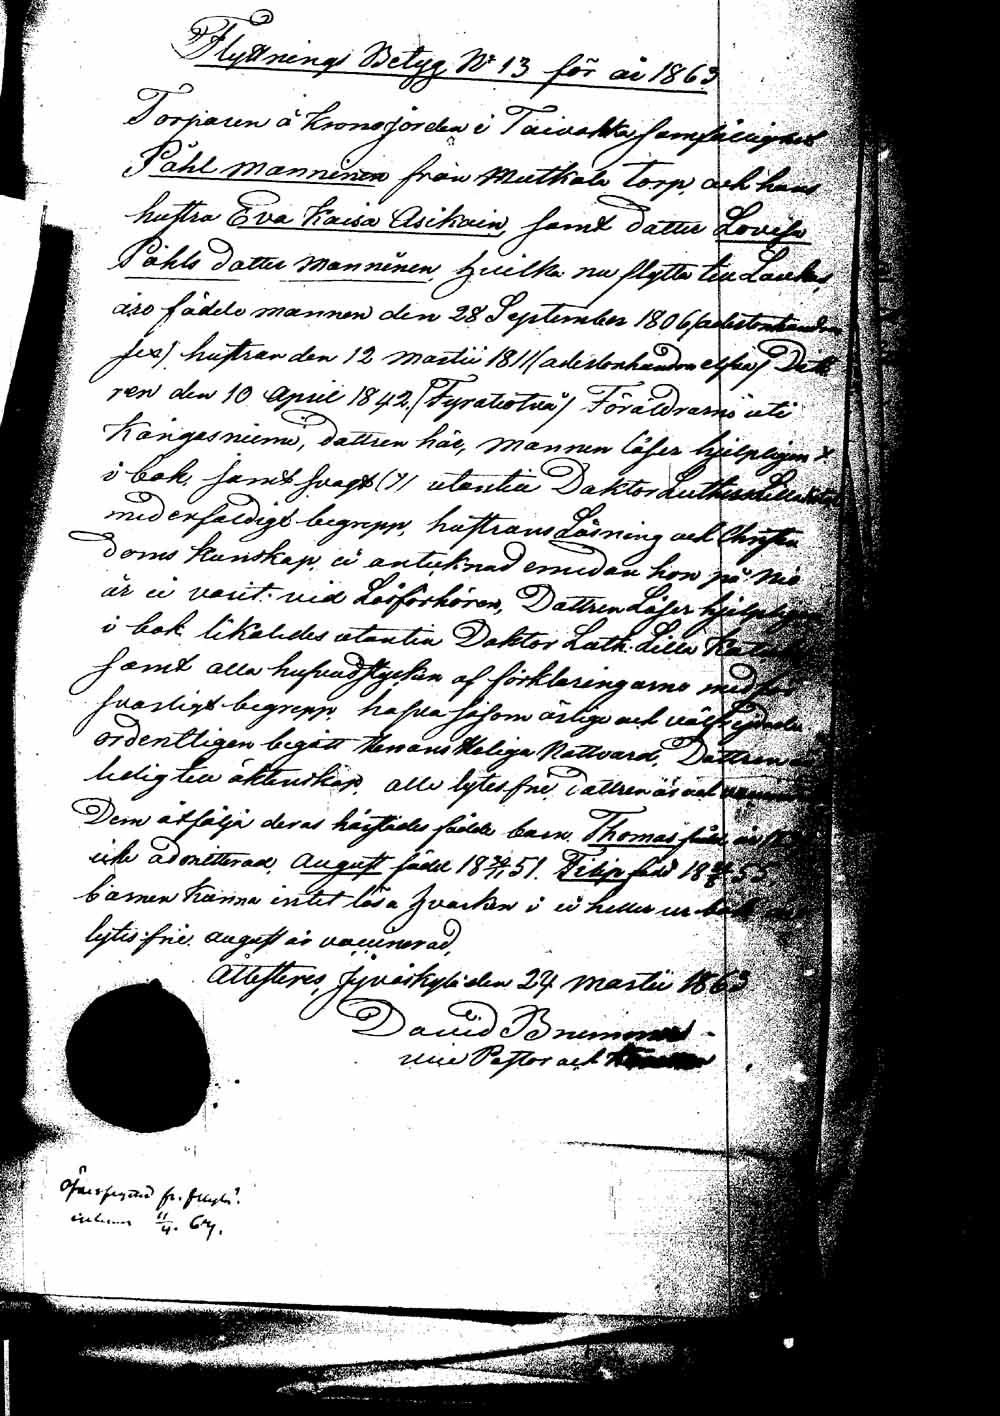 Flyttnings Betyg No 13 för år 1863
Torparen å Kronojorden i Toivakka samfällighet
Påhl Manninen från Mutkala torp och hans
hustru Eva Kaisa Asikain, samt dotter Lovisa
Påhls dotter Manninen, hvilka nu flytta till Laukas,
äro födde mannen den 28 September 1806 (adertonhundra
sex) hustrun den 12 Martii 1811 (adertonhundra elfva) Dott
ren den 10 April 1842 (Fyratiotvå) Föräldrarne uti
Kangasniemi, dottren här, Mannen läser hjelpligen
i bok, samt svagt utantill Doktor Luthers Lilla
med erfaldigt begrepp, hustruns Läsning och Christen
doms kunskap ei antecknad emedan hon på
år ei varit vid Läsförhören, Dottren Läser hjelpligen
i bok likaledes utantill Doktor Luth. Lilla
samt alla hufvudstycken af förklaringarne med för
svarligt begrepp, hafva såsom ärlige och välfrejdade
ordentligen begått Herrans Heliga Nattvard, Dottren
ledig till äktenskap, alla lytesfrie, dottren är
Dem åtfölja deras härstädes födde barn Thomas
icke admitterad, August född 18 51. Filip född 18 55
barnen kunna intet läsa hvarken i ei heller ur bok
lytesfrie. August är vaccinerad,
Attesteres, Jyväskylä den 24 Martii 1863
David Brummer
vice Pastor och
11/4. 64.